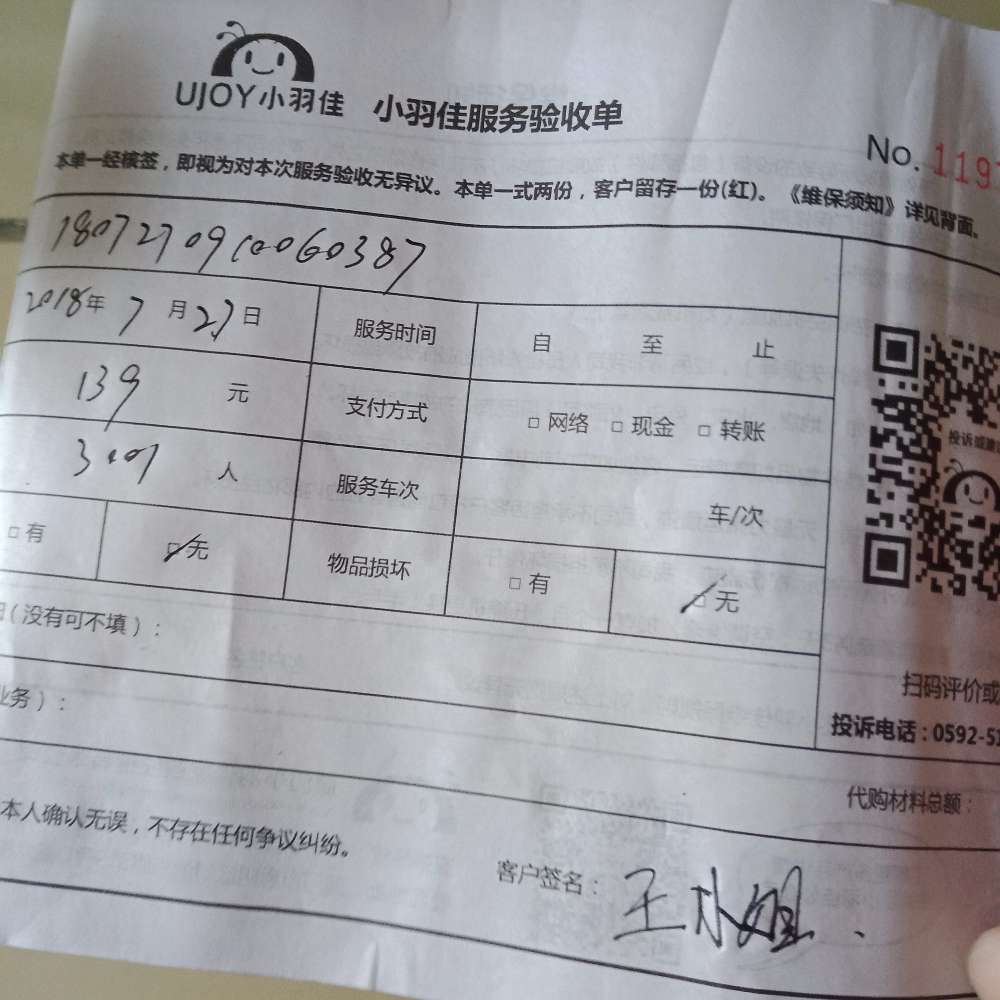 UJOY小羽佳 小羽佳服务验收单
No. 119
本单一经核签，即视为对本次服务验收无异议。本单一式两份，客户留存一份(红)。《维保须知》详见背面。
18072709100060387
2018年 7 月 27 日 服务时间 自 至 止
139 元 支付方式 □ 网络 □ 现金 □ 转账
人 服务车次 车/次
□ 有 □ 无 物品损坏 □ 有 □ 无
（没有可不填）：
业务）：
投诉或建
扫码评价或
投诉电话：0592-51
代购材料总额：
本人确认无误，不存在任何争议纠纷。
客户签名：王小姐.